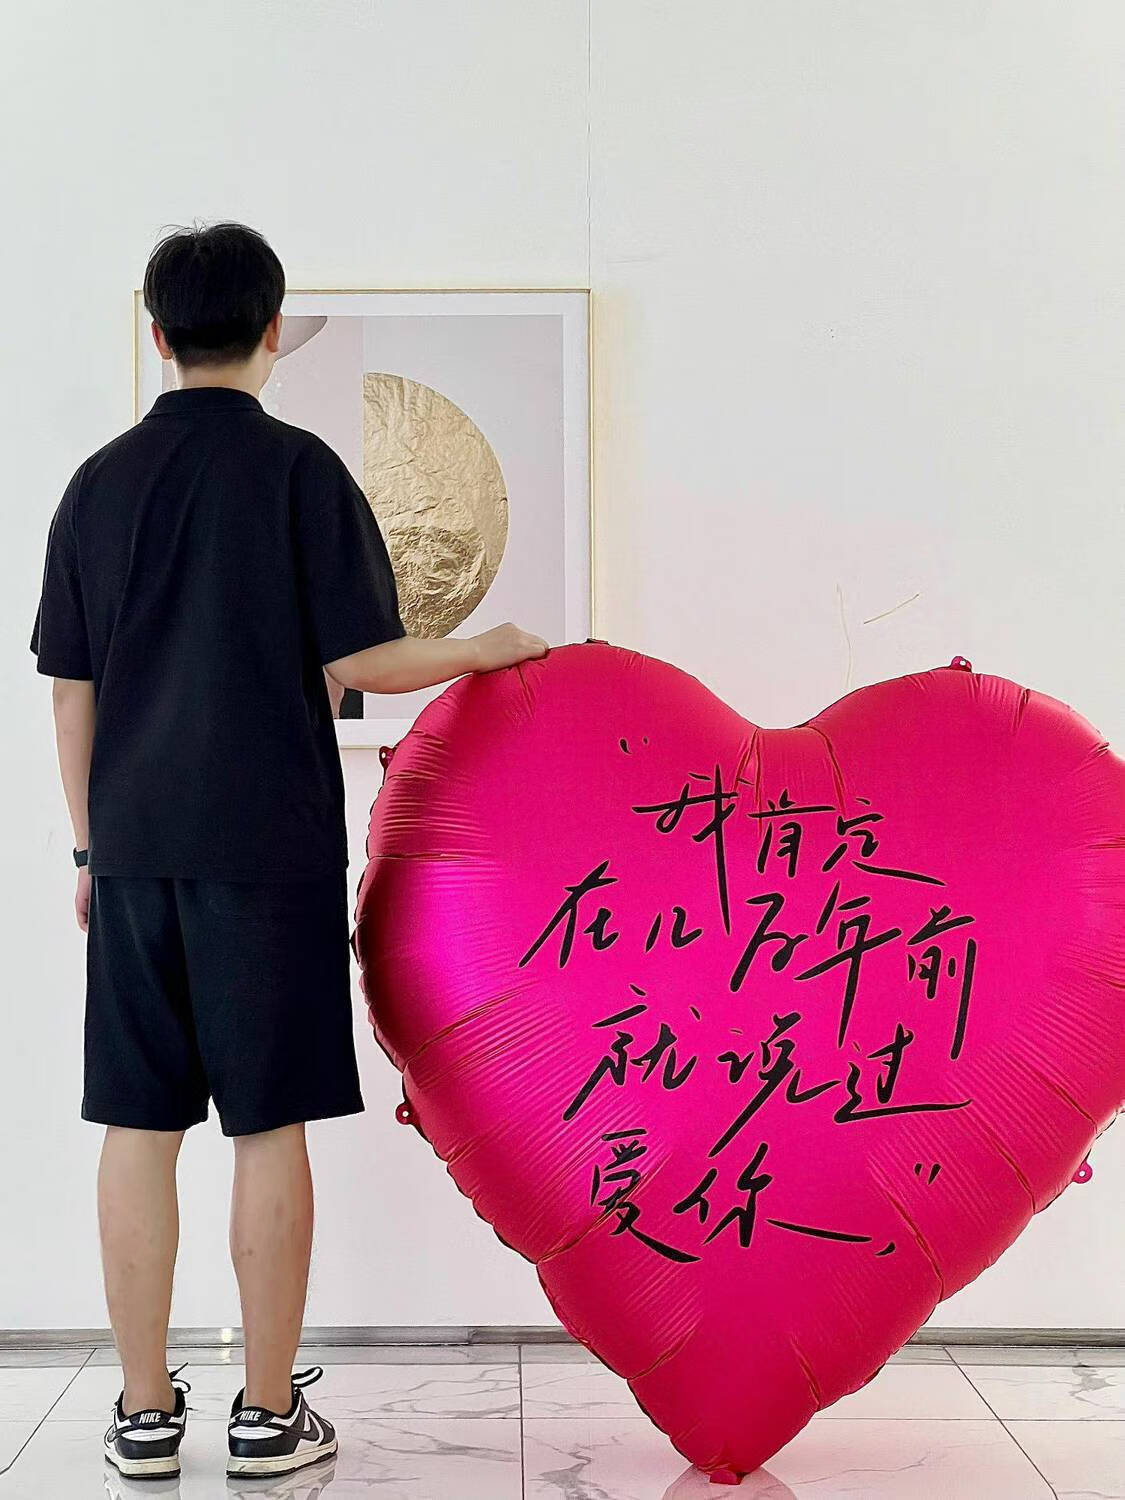 “我肯定
在几万年前
就说过
爱你，”
NIKE
NIKE